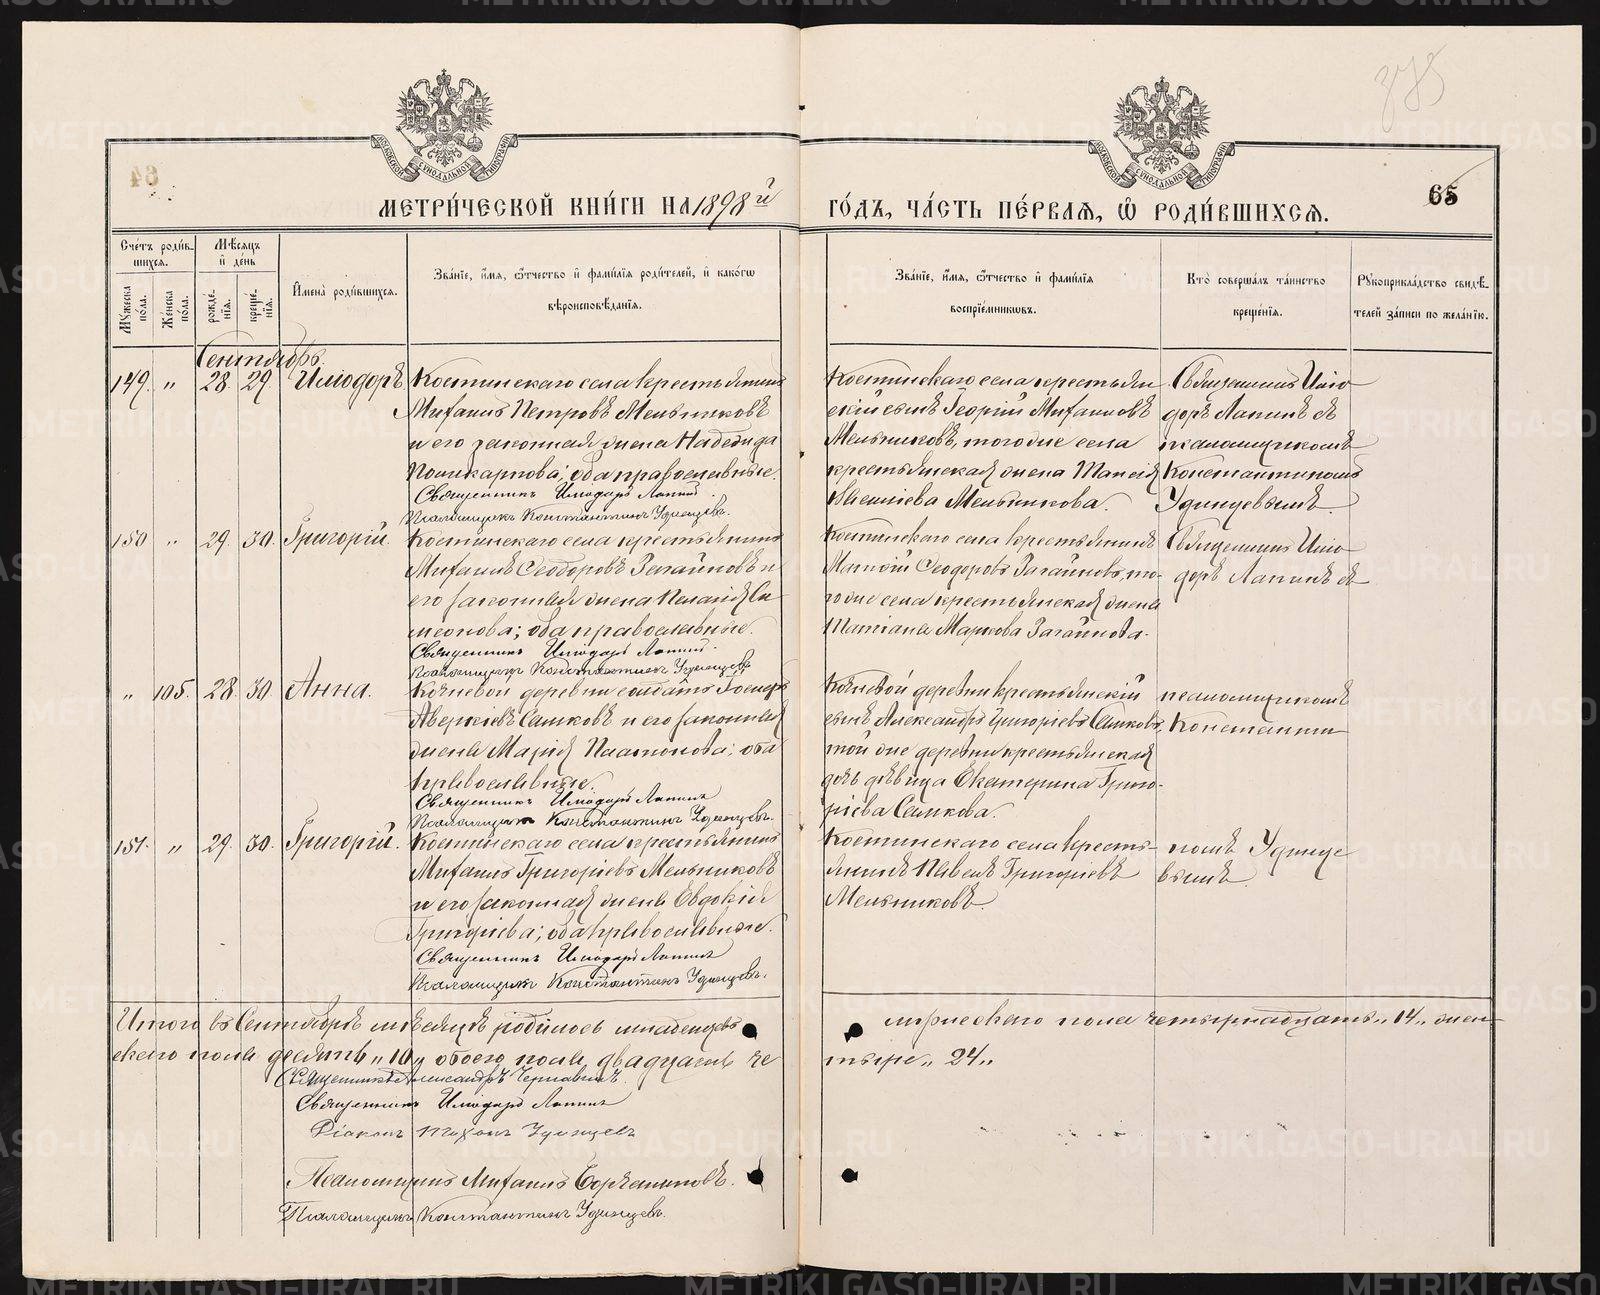 375
64
65
МОСКОВСКОЙ СѴНОДАЛЬНОЙ ТИПОГРАФІИ
МОСКОВСКОЙ СѴНОДАЛЬНОЙ ТИПОГРАФІИ
МЕТРИ́ЧЕСКОЙ КНИ́ГИ НА 1898й ГО́ДЪ, ЧА́СТЬ ПЕ́РВАЯ, Ѡ҆ РОДИ́ВШИХСЯ.
Сче́тъ роди́в-
шихся.
Мѣ́сяцъ
и҆ де́нь
Му́жеска по́ла.
Же́нска по́ла.
рожде́нїя.
креще́нїя.
И҆мена̀ роди́вшихся.
Зва́нїе, и҆́мя, ѻ҆́тчество и҆ фами́лїя роди́телей, и҆ како́гѡ
вѣроисповѣ́данїя.
Зва́нїе, и҆́мя, ѻ҆́тчество и҆ фами́лїя
воспрїе́мникѡвъ.
Кто̀ соверша́лъ та́инство
креще́нїя.
Рукоприкла́дство свидѣ́-
телей за́писи по жела́нїю.
Сентябрь.
149. " 28. 29. Исидоръ
Костинскаго села крестьянинъ
Михаилъ Петровъ Мельниковъ
и его законная жена Надежда
Поликарпова; оба православные.
Священникъ Исидоръ Лапинъ.
Псаломщикъ Константинъ Удинцевъ.
Костинскаго села крестьян
скій сынъ Георгій Михаиловъ
Мельниковъ, того же села
крестьянская жена Таисія
Мельникова.
Священникъ Исидоръ Лапинъ съ
псаломщикомъ
Константиномъ
Удинцевымъ.
150 " 29. 30. Григорій.
Костинскаго села крестьянинъ
Михаилъ Ѳеодоровъ Загайновъ и
его законная жена Пелагія Си
меонова; оба православные.
Священникъ Исидоръ Лапинъ.
Псаломщикъ Константинъ Удинцевъ.
Костинскаго села крестьянинъ
Ѳеодоровъ Загайновъ, то-
го же села крестьянская жена
Татіана Маркова Загайнова.
Священникъ Исидоръ Лапинъ съ
" 105. 28. 30. Анна.
деревни солдатъ
Аверкіевъ и его законная
жена Марія Платонова; оба
православные.
Священникъ Исидоръ Лапинъ
Псаломщикъ Константинъ Удинцевъ.
деревни крестьянскій
сынъ Александръ Григоріевъ
той же деревни крестьянская
дочь дѣвица Екатерина Григо-
ріева
псаломщикомъ
Константи
151. " 29. 30. Григорій.
Костинскаго села крестьянинъ
Михаилъ Григоріевъ Мельниковъ
и его законная жена Евдокія
Григоріева; оба православные.
Священникъ Исидоръ Лапинъ
Псаломщикъ Константинъ Удинцевъ.
Костинскаго села кресть-
янинъ Павелъ Григоріевъ
Мельниковъ.
номъ Удинце
вымъ.
Итого въ Сентябрѣ мѣсяцѣ родилось младенцевъ мужескаго пола четырнадцать „14„ жен-
скаго пола десять „10„ обоего пола двадцать че тыре „24„
Священникъ Александръ Чернавинъ.
Священникъ Исидоръ Лапинъ
Діаконъ Тихонъ Удинцевъ
Псаломщикъ Михаилъ
Псаломщикъ Константинъ Удинцевъ.
METRIKI.GASO-URAL.RU